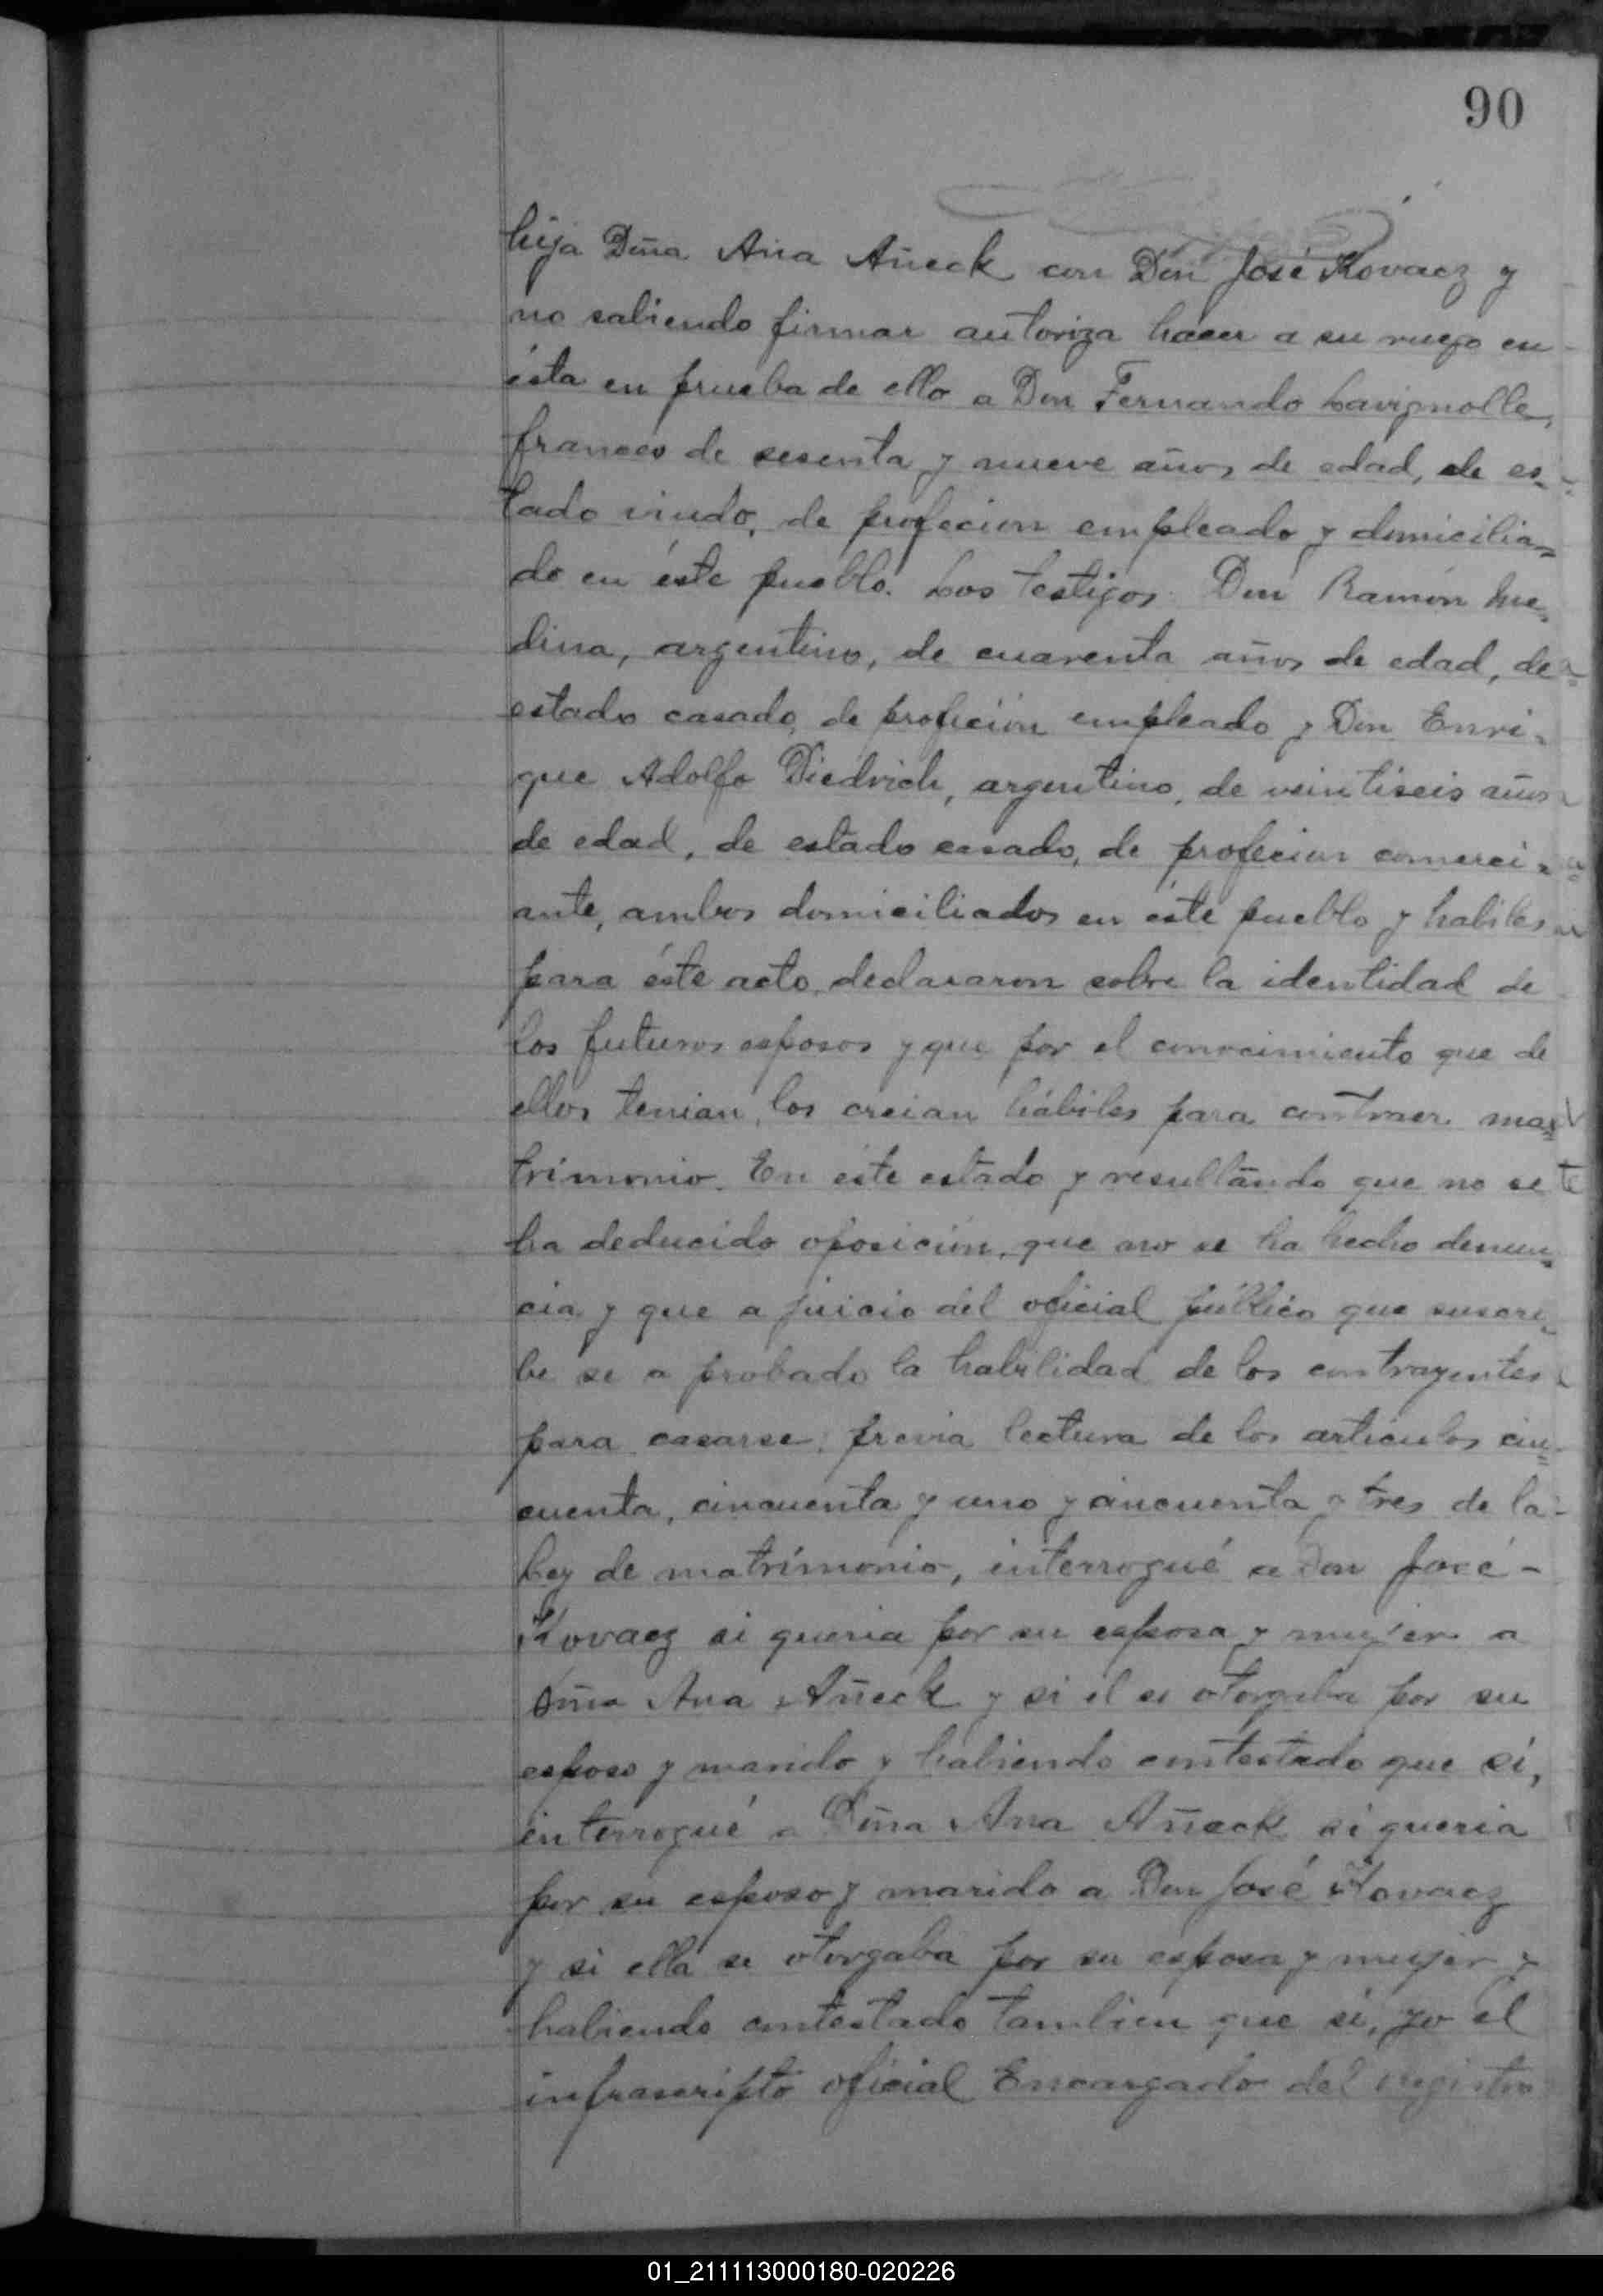 90
hija Dña Ana Añeck con Don José Kovacz y
no sabiendo firmar autoriza hacer a su ruego en
ésta en prueba de ello a Don Fernando Lavignolle,
frances de sesenta y nueve años de edad, de es-
tado viudo, de profecion empleado y domicilia=
do en éste pueblo. Los testigos Don Ramón Me=
dina, argentino, de cuarenta años de edad, de
estado casado, de profecion empleado y Don Enri=
que Adolfo Diedrich, argentino, de veintiseis años
de edad, de estado casado, de profecion comerci=
ante, ambos domiciliados en éste pueblo y habiles
para éste acto, declararon sobre la identidad de
los futuros esposos y que por el conocimiento que de
ellos tenian, los creian hábiles para contraer ma=
trimonio. En éste estado y resultando que no se
ha deducido oposición, que no se ha hecho denun=
cia y que a juicio del oficial público que suscri=
be se a probado la habilidad de los contrayentes
para casarse; previa lectura de los articulos cin=
cuenta, cincuenta y uno y cincuenta y tres de la-
Ley de matrimonio, interrogué a Don José -
Kovacz si queria por su esposa y mujer a
Dña Ana Añeck y si el se otorgaba por su
esposo y marido y habiendo contestado que si,
interrogué a Dña Ana Añeck si queria
por su esposo y marido a Don José Kovacz
y si ella se otorgaba por su esposa y mujer y
habiendo contestado tambien que si, yo el
infrascripto oficial Encargado del registro
01_211113000180-020226